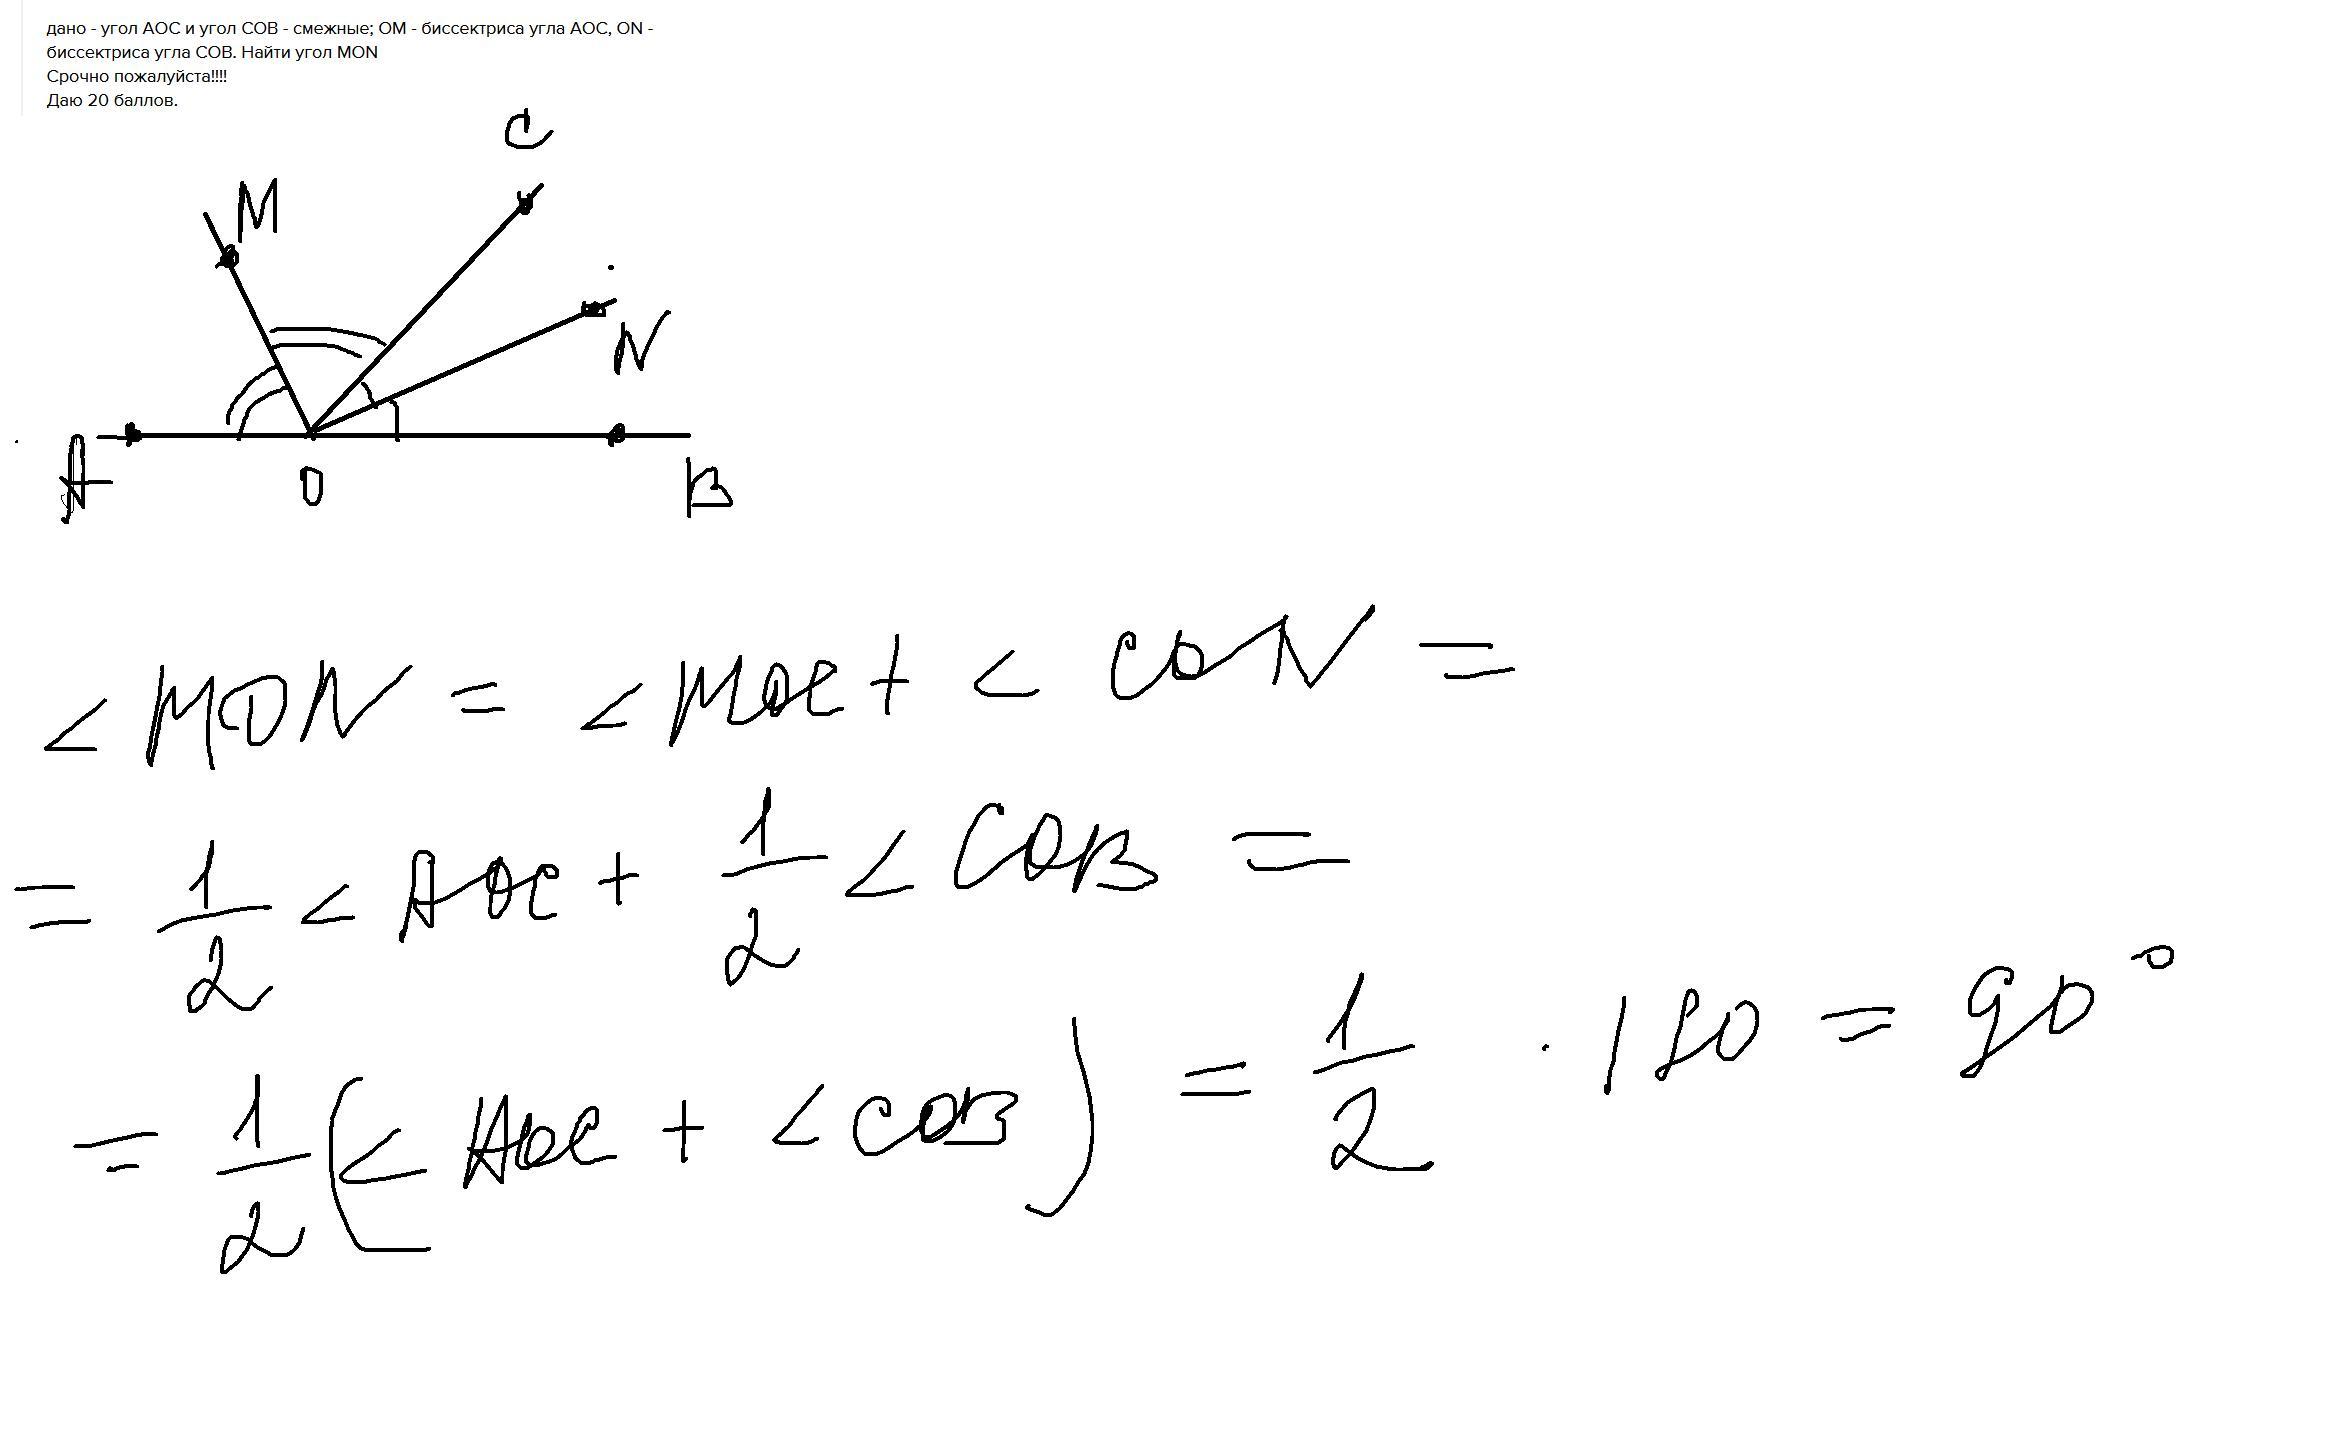 дано - угол АОС и угол СОВ - смежные; ОМ - биссектриса угла АОС, ON -
биссектриса угла СОВ. Найти угол MON
Срочно пожалуйста!!!!
Даю 20 баллов.
C
M
N
A
O
B
< MON = < MOC + < CON =
= 1/2 < AOC + 1/2 < COB =
= 1/2 (< AOC + < COB) = 1/2 · 180 = 90°